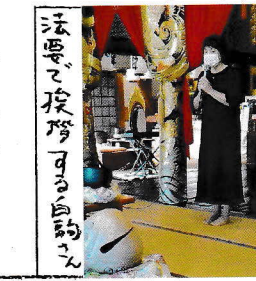 法要で挨拶する白鞘さん